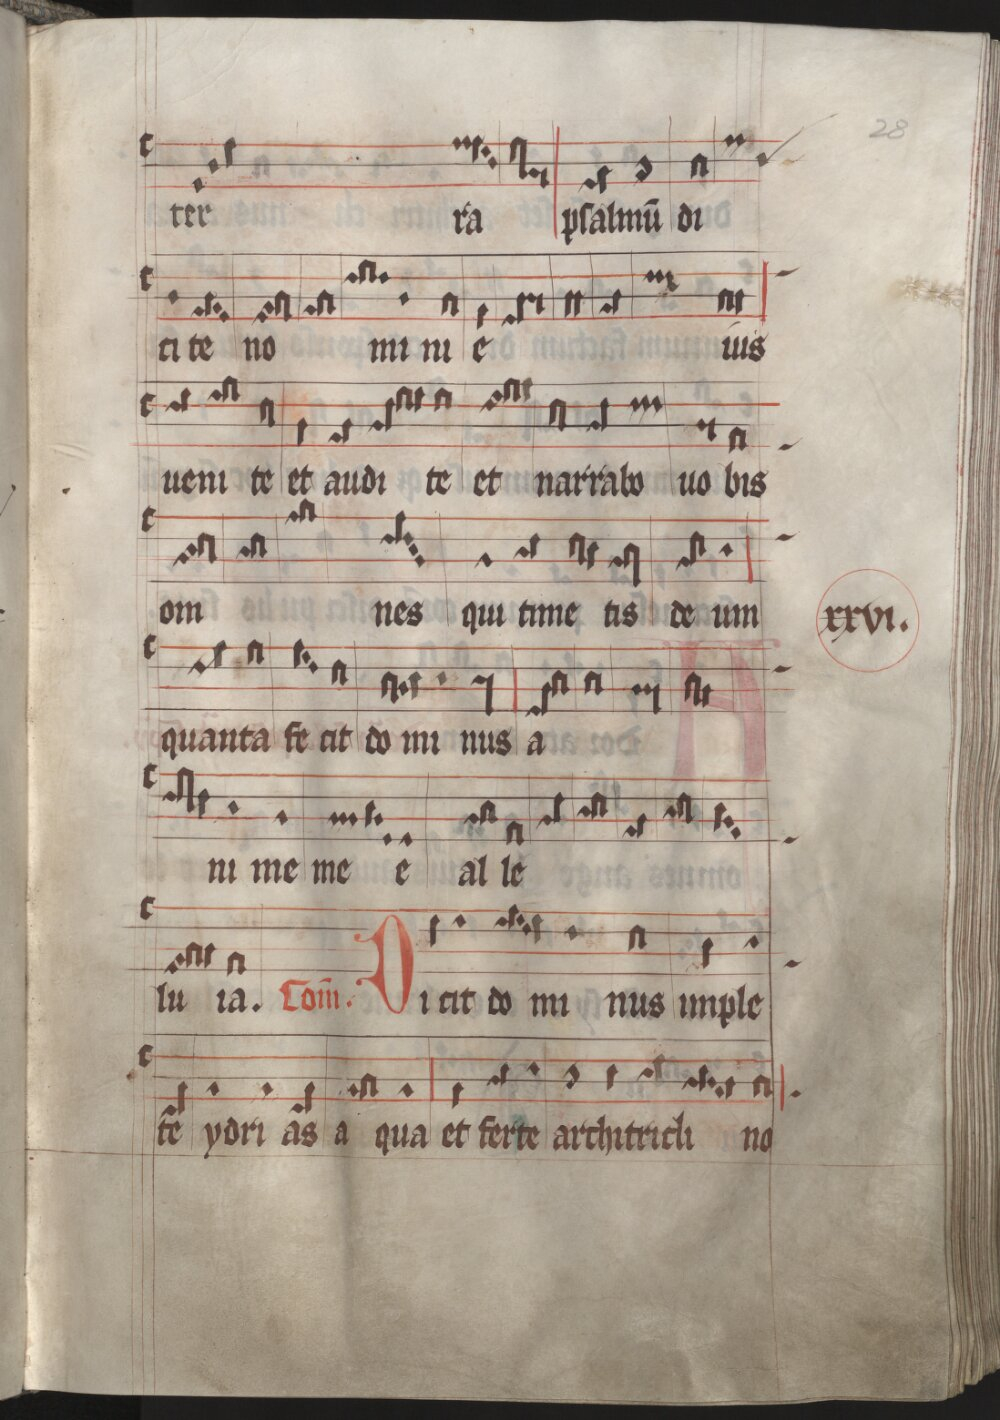 28
ter ra psalmū di
ci te no mi ni e ius
ueni te et audi te et narrabo uo bis
om nes qui time tis de um
xxvi.
quanta fe cit do mi nus a
ni me me e al le
lu ia. Com̄. Di cit do mi nus imple
te ydri as a qua et ferte architricli no